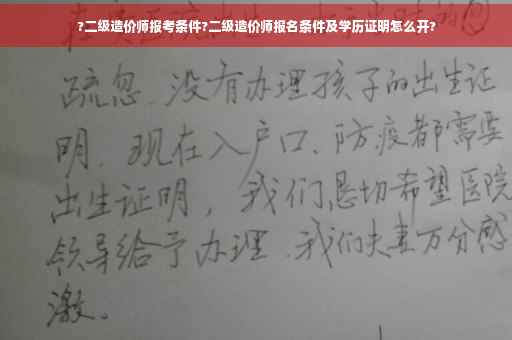 ?二级造价师报考条件?二级造价师报名条件及学历证明怎么开?
疏忽、没有办理孩子的出生证
明、现在入户口、防疫都需要
出生证明，我们恳切希望医院
领导给予办理、我们夫妻万分感
激。